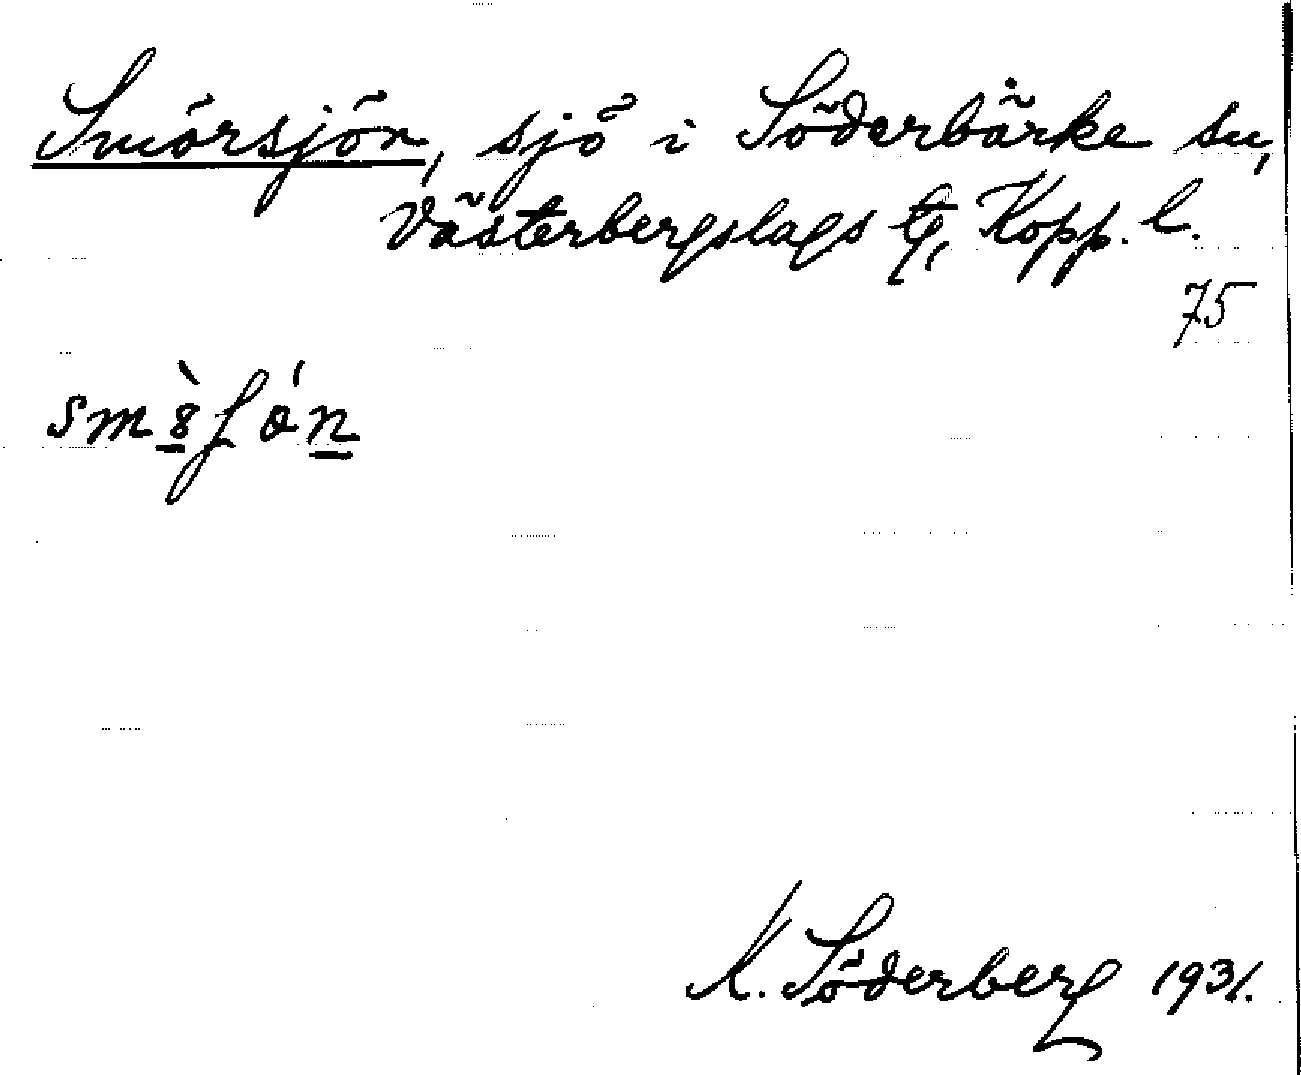 Smörsjön, sjö i Söderbärke sn,
Västerbergslags tg, Kopp. l.
75
K. Söderberg 1931.